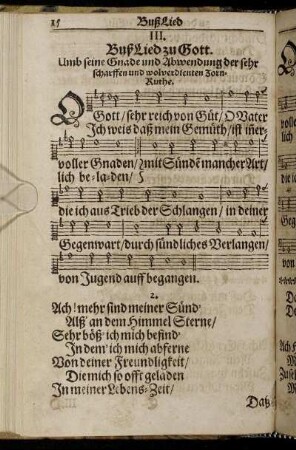 15 BußLied
III.
Buß Lied zu Gott.
Umb seine Gnade und Abwendung der sehr
scharffen und wolverdienten Zorn-
Ruthe.
O Gott/ sehr reich von Güt/ O Vater
Ich weis daß mein Gemüth/ ist iñer-
voller Gnaden/ mit Sündē mancher Art/
lich be-la-den/
die ich aus Trieb der Schlangen/ in deiner
Gegenwart/ durch sündliches Verlangen/
von Jugend auff begangen.
2.
Ach! mehr sind meiner Sünd'
Alß an dem Himmel Sterne/
Sehr böß' ich mich befind'
In dem ich mich abferne
Von deiner Freundligkeit/
Die mich so offt geladen
In meiner Lebens-Zeit/
Daß